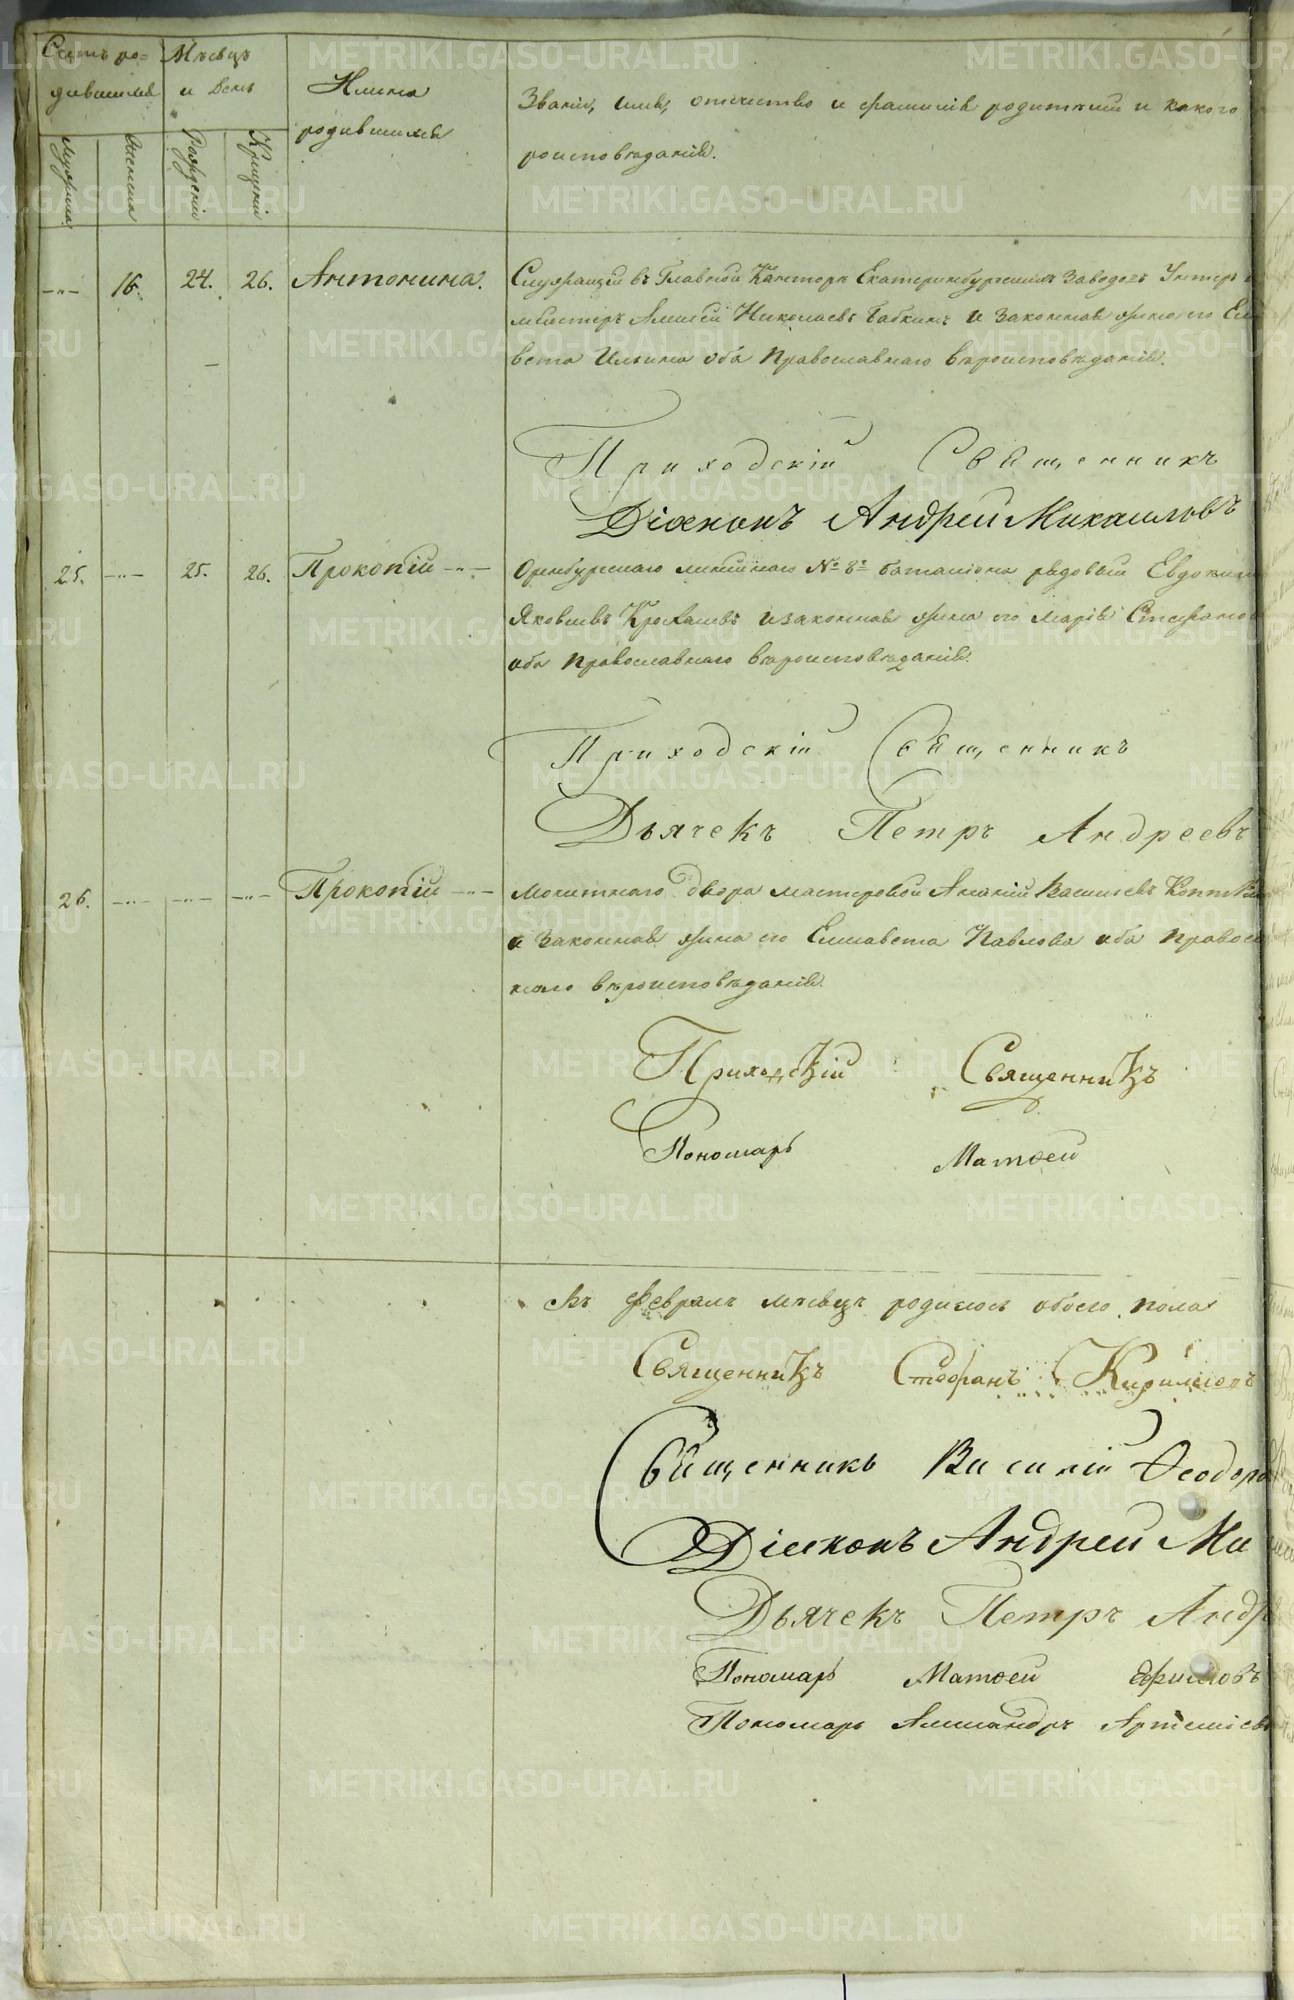 Счетъ ро-
дившихся
Мѣсяцъ
и день
Имена
родившихся
Званіе, имя, отчество и фамилія родителей и какого
роисповѣданія.
Мужеска
Женска
Рожденія
Крещенія
16. 24. 26. Антонина. Служащей въ Главной Канторѣ Екатеринбургскихъ Заводовъ Унтеръ
мейстеръ Алексѣй Николаевъ Бабкинъ и законная жена его Ели
вета Ильина оба Православнаго вѣроисповѣданія.
Приходскій Священникъ
Діаконъ Андрей Михаиловъ
25. 25. 26. Прокопій Оренбургскаго линѣйнаго № 8го баталіона рядовый Евдокимъ
Яковлевъ и законная жена его Марія Стефанов
оба Православнаго вѣроисповѣданія.
Приходскій Священникъ
Дьячекъ Петръ Андреевъ
26. Прокопій Монетнаго двора мастеровой Ананій Васильевъ
и законная жена его Елисавета Павлова оба Правосл
наго вѣроисповѣданія.
Приходскій Священникъ
Пономарь Матѳей
Въ Февралѣ мѣсяцѣ родилось обоего пола
Священникъ Стефанъ Кириловъ
Священникъ Василій Ѳеодоро
Діаконъ Андрей Ми
Дьячекъ Петръ Андр
Пономарь Матѳей Ефимовъ
Пономарь Александръ Артеміевъ
METRIKI.GASO-URAL.RU